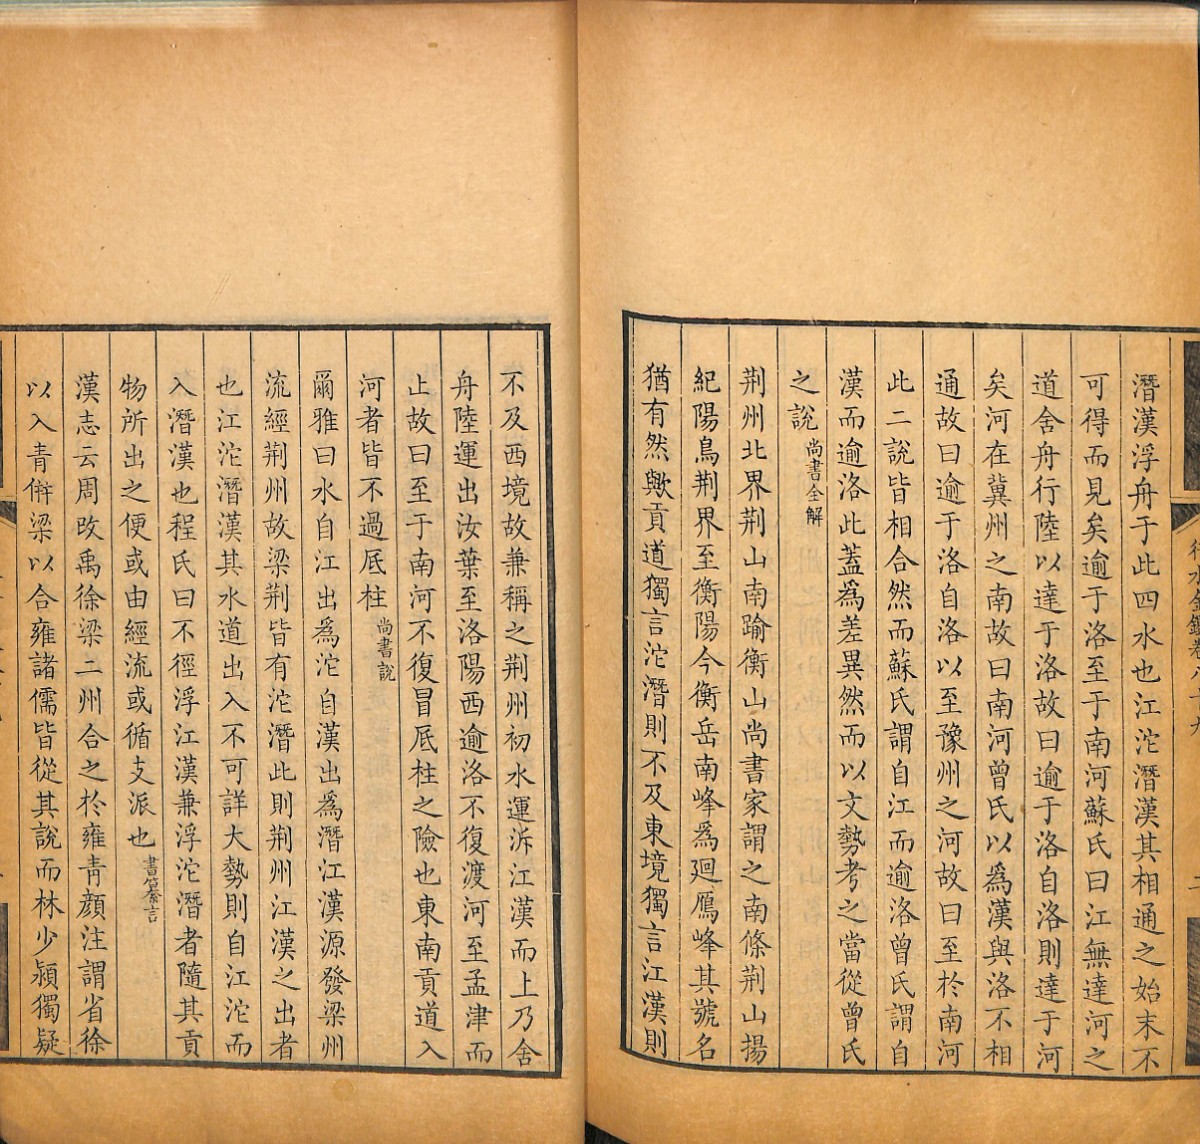 潛漢浮舟于此四水也江沱潛漢其相通之始末不
可得而見矣逾于洛至于南河蘇氏曰江無達河之
道舍舟行陸以達于洛故曰逾于洛自洛則達于河
矣河在冀州之南故曰南河曾氏以為漢與洛不相
通故曰逾于洛自洛以至豫州之河故曰至於南河
此二說皆相合然而蘇氏謂自江而逾洛曾氏謂自
漢而逾洛此蓋為差異然而以文勢考之當從曾氏
之說尚書全解
荆州北界荆山南踰衡山尚書家謂之南條荆山揚
紀陽鳥荆界至衡陽今衡岳南峰為廻鴈峰其號名
猶有然歟貢道獨言沱潛則不及東境獨言江漢則
不及西境故兼稱之荆州初水運泝江漢而上乃舍
舟陸運出汝葉至洛陽西逾洛不復渡河至孟津而
止故曰至于南河不復冒厎柱之險也東南貢道入
河者皆不過厎柱尚書說
爾雅曰水自江出為沱自漢出為潛江漢源發梁州
流經荆州故梁荆皆有沱潛此則荆州江漢之出者
也江沱潛漢其水道出入不可詳大勢則自江沱而
入潛漢也程氏曰不徑浮江漢兼浮沱潛者隨其貢
物所出之便或由經流或循支派也書纂言
漢志云周攺禹徐梁二州合之於雍靑顏注謂省徐
以入青併梁以合雍諸儒皆從其說而林少穎獨疑